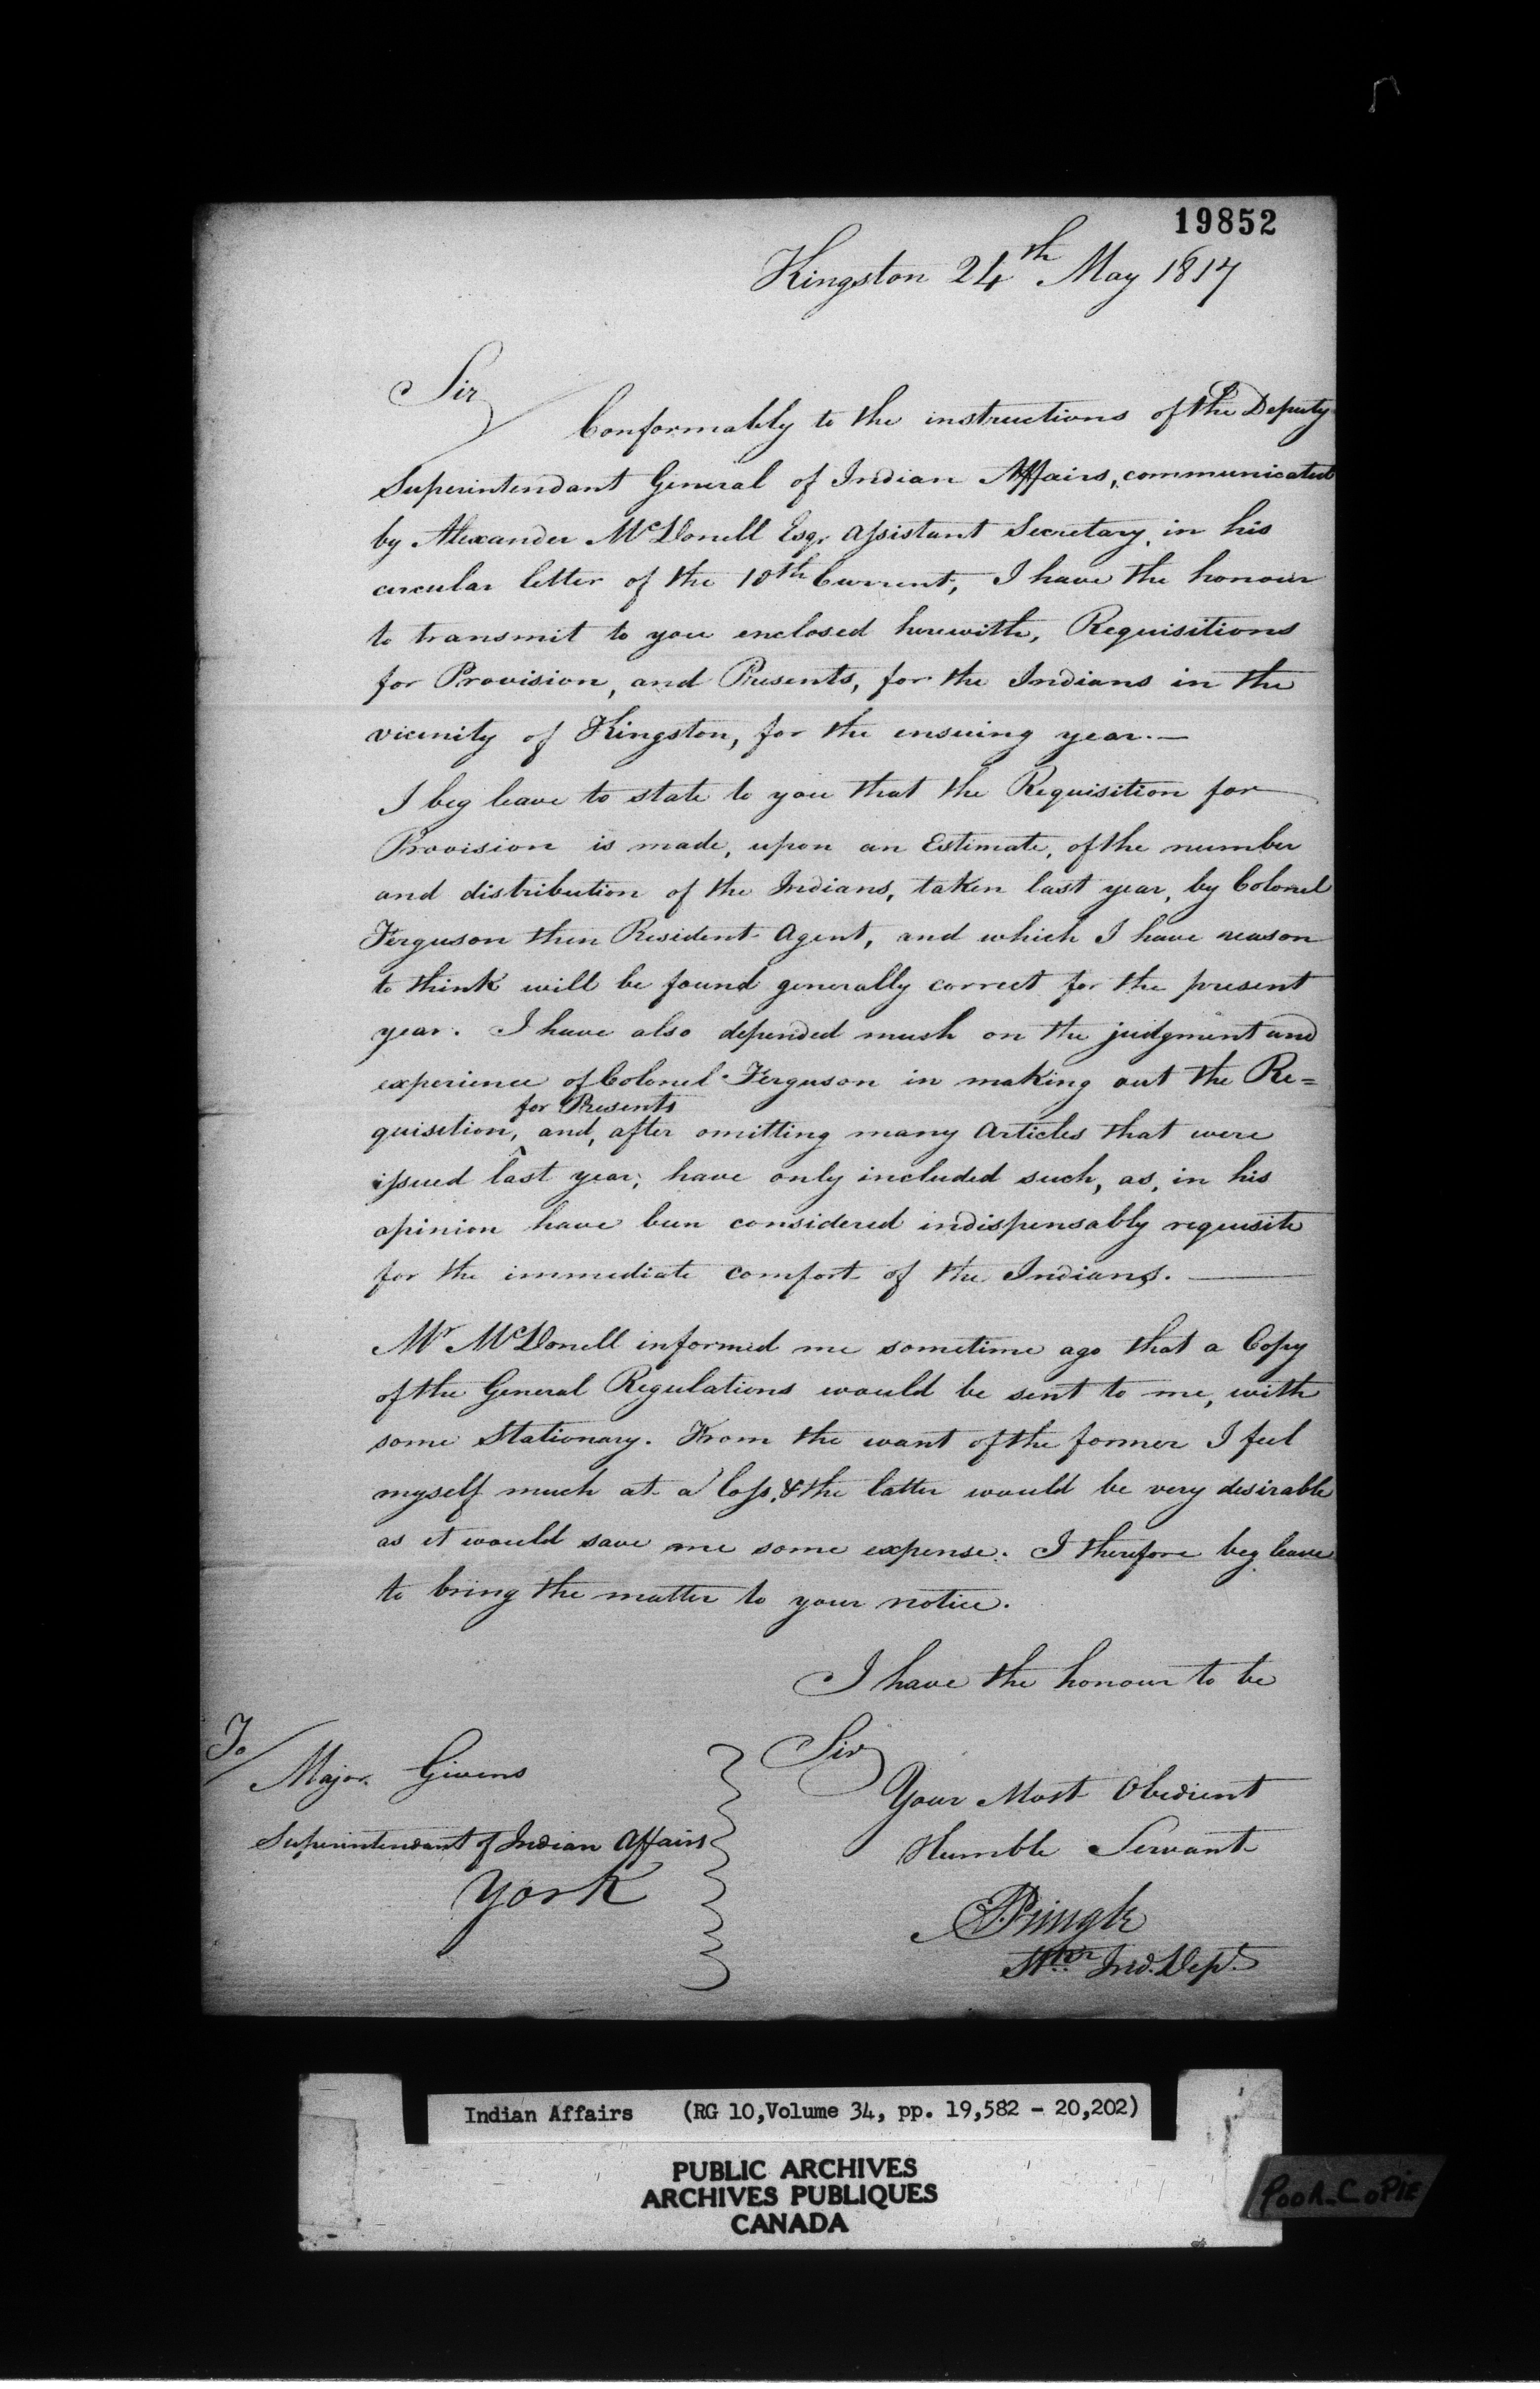 19852
Kingston 24th May 1817
Sir
Conformably to the instructions of the Deputy
Superintendant General of Indian Affairs, communicated
by Alexander McDonell Esqr. Assistant Secretary, in his
circular letter of the 10th Current, I have the honour
to transmit to you enclosed herewith, Requisitions
for Provision, and Presents, for the Indians in the
vicinity of Kingston, for the ensuing year.—
I beg leave to state to you that the Requisition for
Provision is made, upon an Estimate, of the number
and distribution of the Indians, taken last year, by Colonel
Ferguson then Resident Agent, and which I have reason
to think will be found generally correct for the present
year. I have also depended mush on the judgment and
experience of Colonel Ferguson in making out the Re=
for Presents
quisition, and, after omitting many Articles that were
issued last year, have only included such, as, in his
opinion have been considered indispensably requisite
for the immediate comfort of the Indians.—
Mr McDonell informed me sometime ago that a Copy
of the General Regulations would be sent to me, with
some Stationary. From the want of the former I feel
myself much at a loss, & the latter would be very desirable
as it would save me some expense. I therefore beg leave
to bring the matter to your notice.
I have the honour to be
Sir
Your Most Obedient
Humble Servant
Pringle
Ind. Dept.
To
Major Givens
Superintendant of Indian Affairs
York
Indian Affairs (RG 10, Volume 34, pp. 19,582 - 20,202)
PUBLIC ARCHIVES
ARCHIVES PUBLIQUES
CANADA
POOR-COPIE